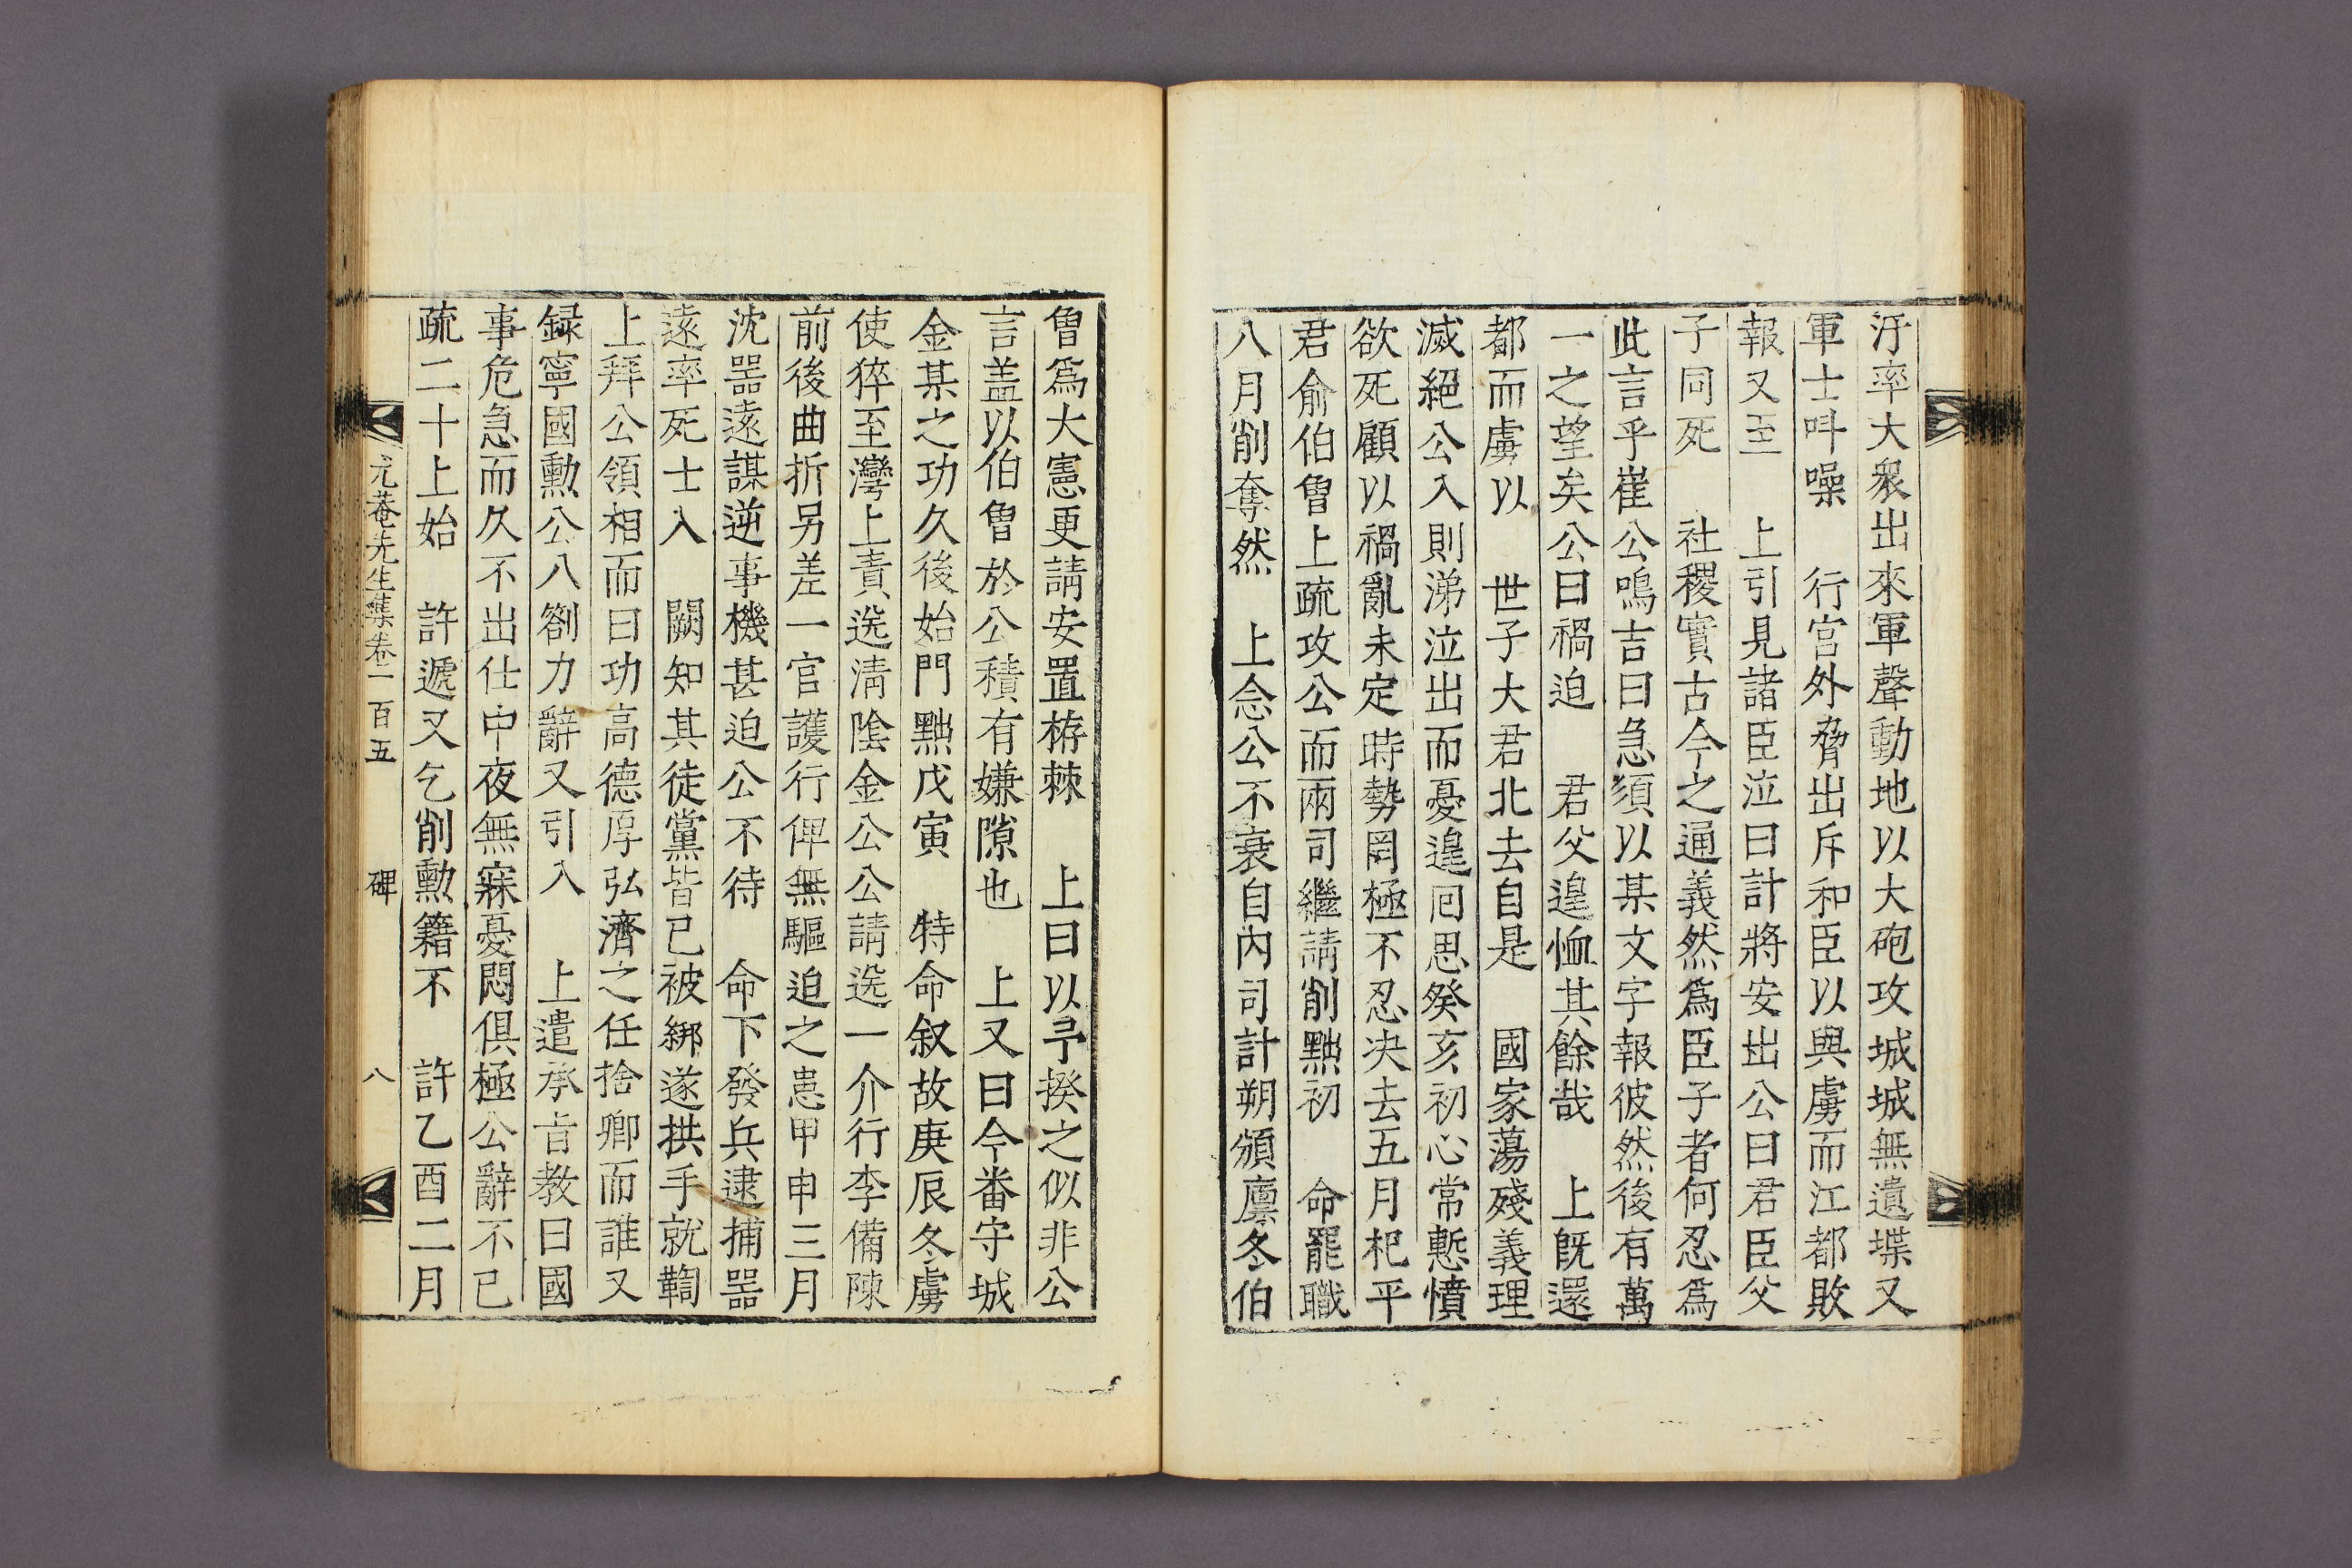 汙率大衆出來軍聲動地以大砲攻城城無遺堞又
軍士叫噪 行宮外脅出斥和臣以與虜而江都敗
報又至 上引見諸臣泣曰計將安出公曰君臣父
子同死 社稷實古今之通義然爲臣子者何忍爲
此言乎崔公鳴吉曰急須以某文字報彼然後有萬
一之望矣公曰禍迫 君父遑恤其餘哉 上旣還
都而虜以 世子大君北去自是 國家蕩殘義理
滅絕公入則涕泣出而憂遑囘思癸亥初心常慙憤
欲死顧以禍亂未定時勢罔極不忍决去五月杞平
君俞伯曾上疏攻公而兩司繼請削黜初 命罷職
八月削奪然 上念公不衰自內司計朔頒廩冬伯
曾爲大憲更請安置栫棘 上曰以予揆之似非公
言盖以伯曾於公積有嫌隙也 上又曰今番守城
金某之功久後始門黜戊寅 特命叙故庚辰冬虜
使猝至灣上責送淸陰金公公請送一介行李備陳
前後曲折另差一官護行俾無驅迫之患甲申三月
沈器遠謀逆事機甚迫公不待 命下發兵逮捕器
遠率死士入 闕知其徒黨皆已被綁遂拱手就鞫
上拜公領相而曰功高德厚弘濟之任捨卿而誰又
録寧國勳公八劄力辭又引入 上遣承旨教曰國
事危急而久不出仕中夜無寐憂悶俱極公辭不已
疏二十上始 許遞又乞削勳籍不 許乙酉二月
尤菴先生集卷一百五 碑 八